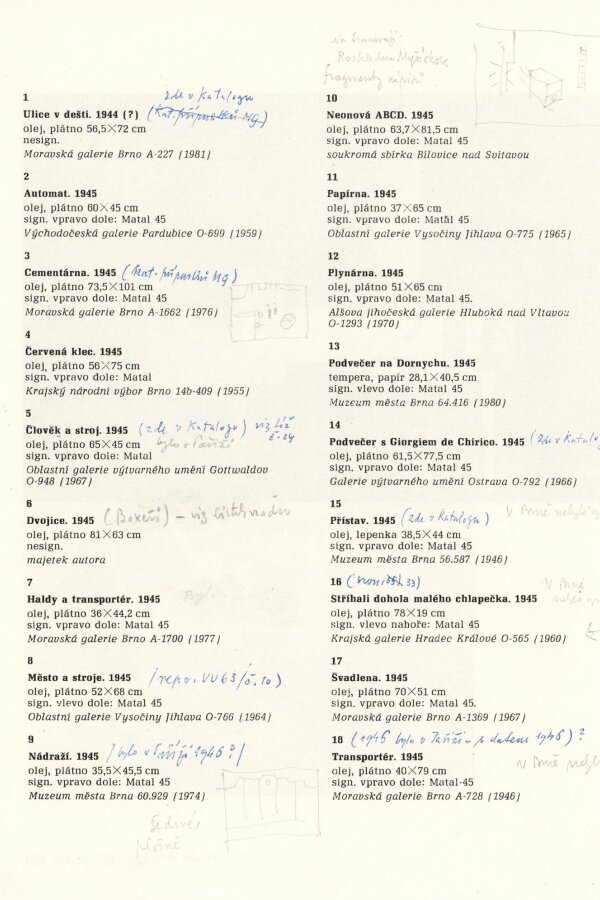 1
zde v katalogu
Ulice v dešti. 1944 (?)
olej, plátno 56,5×72 cm
nesign.
Moravská galerie Brno A-227 (1981)
2
Automat. 1945
olej, plátno 60×45 cm
sign. vpravo dole: Matal 45
Východočeská galerie Pardubice O-699 (1959)
3
Cementárna. 1945
olej, plátno 73,5×101 cm
sign. vpravo dole: Matal 45
Moravská galerie Brno A-1662 (1976)
4
Červená klec. 1945
olej, plátno 56×75 cm
sign. vpravo dole: Matal
Krajský národní výbor Brno 14b-409 (1955)
5
Člověk a stroj. 1945 (zde v katalogu) viz též č. 24
olej, plátno 65×45 cm bylo v Paříži
sign. vpravo dole: Matal
Oblastní galerie výtvarného umění Gottwaldov
O-948 (1967)
6
Dvojice. 1945 (Boxeři) – viz
olej, plátno 81×63 cm
nesign.
majetek autora
7
Haldy a transportér. 1945
olej, plátno 36×44,2 cm
sign. vpravo dole: Matal 45
Moravská galerie Brno A-1700 (1977)
8
Město a stroje. 1945 /repr. VU 63/č. 10)
olej, plátno 52×68 cm
sign. vlevo dole: Matal 45
Oblastní galerie Vysočiny Jihlava O-766 (1964)
9
Nádraží. 1945 /bylo v Paříži 1946?/
olej, plátno 35,5×45,5 cm
sign. vpravo dole: Matal 45
Muzeum města Brna 60.929 (1974)
šedivé,
plošné
Na
Rozhlednu
fragmenty nápisů
10
Neonová ABCD. 1945
olej, plátno 63,7×81,5 cm
sign. vpravo dole: Matal 45
soukromá sbírka Bílovice nad Svitavou
11
Papírna. 1945
olej, plátno 37×65 cm
sign. vpravo dole: Matal 45
Oblastní galerie Vysočiny Jihlava O-775 (1965)
12
Plynárna. 1945
olej, plátno 51×65 cm
sign. vpravo dole: Matal 45.
Alšova jihočeská galerie Hluboká nad Vltavou
O-1293 (1970)
13
Podvečer na Dornychu. 1945
tempera, papír 28,1×40,5 cm
sign. vlevo dole: Matal 45
Muzeum města Brna 64.416 (1980)
14
Podvečer s Giorgiem de Chirico. 1945 (zde v
olej, plátno 61,5×77,5 cm
sign. vpravo dole: Matal 45
Galerie výtvarného umění Ostrava O-792 (1966)
15
Přístav. 1945 (zde v katalogu) V Brně
olej, lepenka 38,5×44 cm
sign. vpravo dole: Matal 45
Muzeum města Brna 56.587 (1946)
16
V Brně
Stříhali dohola malého chlapečka. 1945
olej, plátno 78×19 cm
sign. vlevo nahoře: Matal 45
Krajská galerie Hradec Králové O-565 (1960)
17
Švadlena. 1945
olej, plátno 70×51 cm
sign. vpravo dole: Matal 45.
Moravská galerie Brno A-1369 (1967)
18 (1945 bylo v Paříži – s datem 1946)?
Transportér. 1945 v Brně
olej, plátno 40×79 cm
sign. vpravo dole: Matal-45
Moravská galerie Brno A-728 (1946)